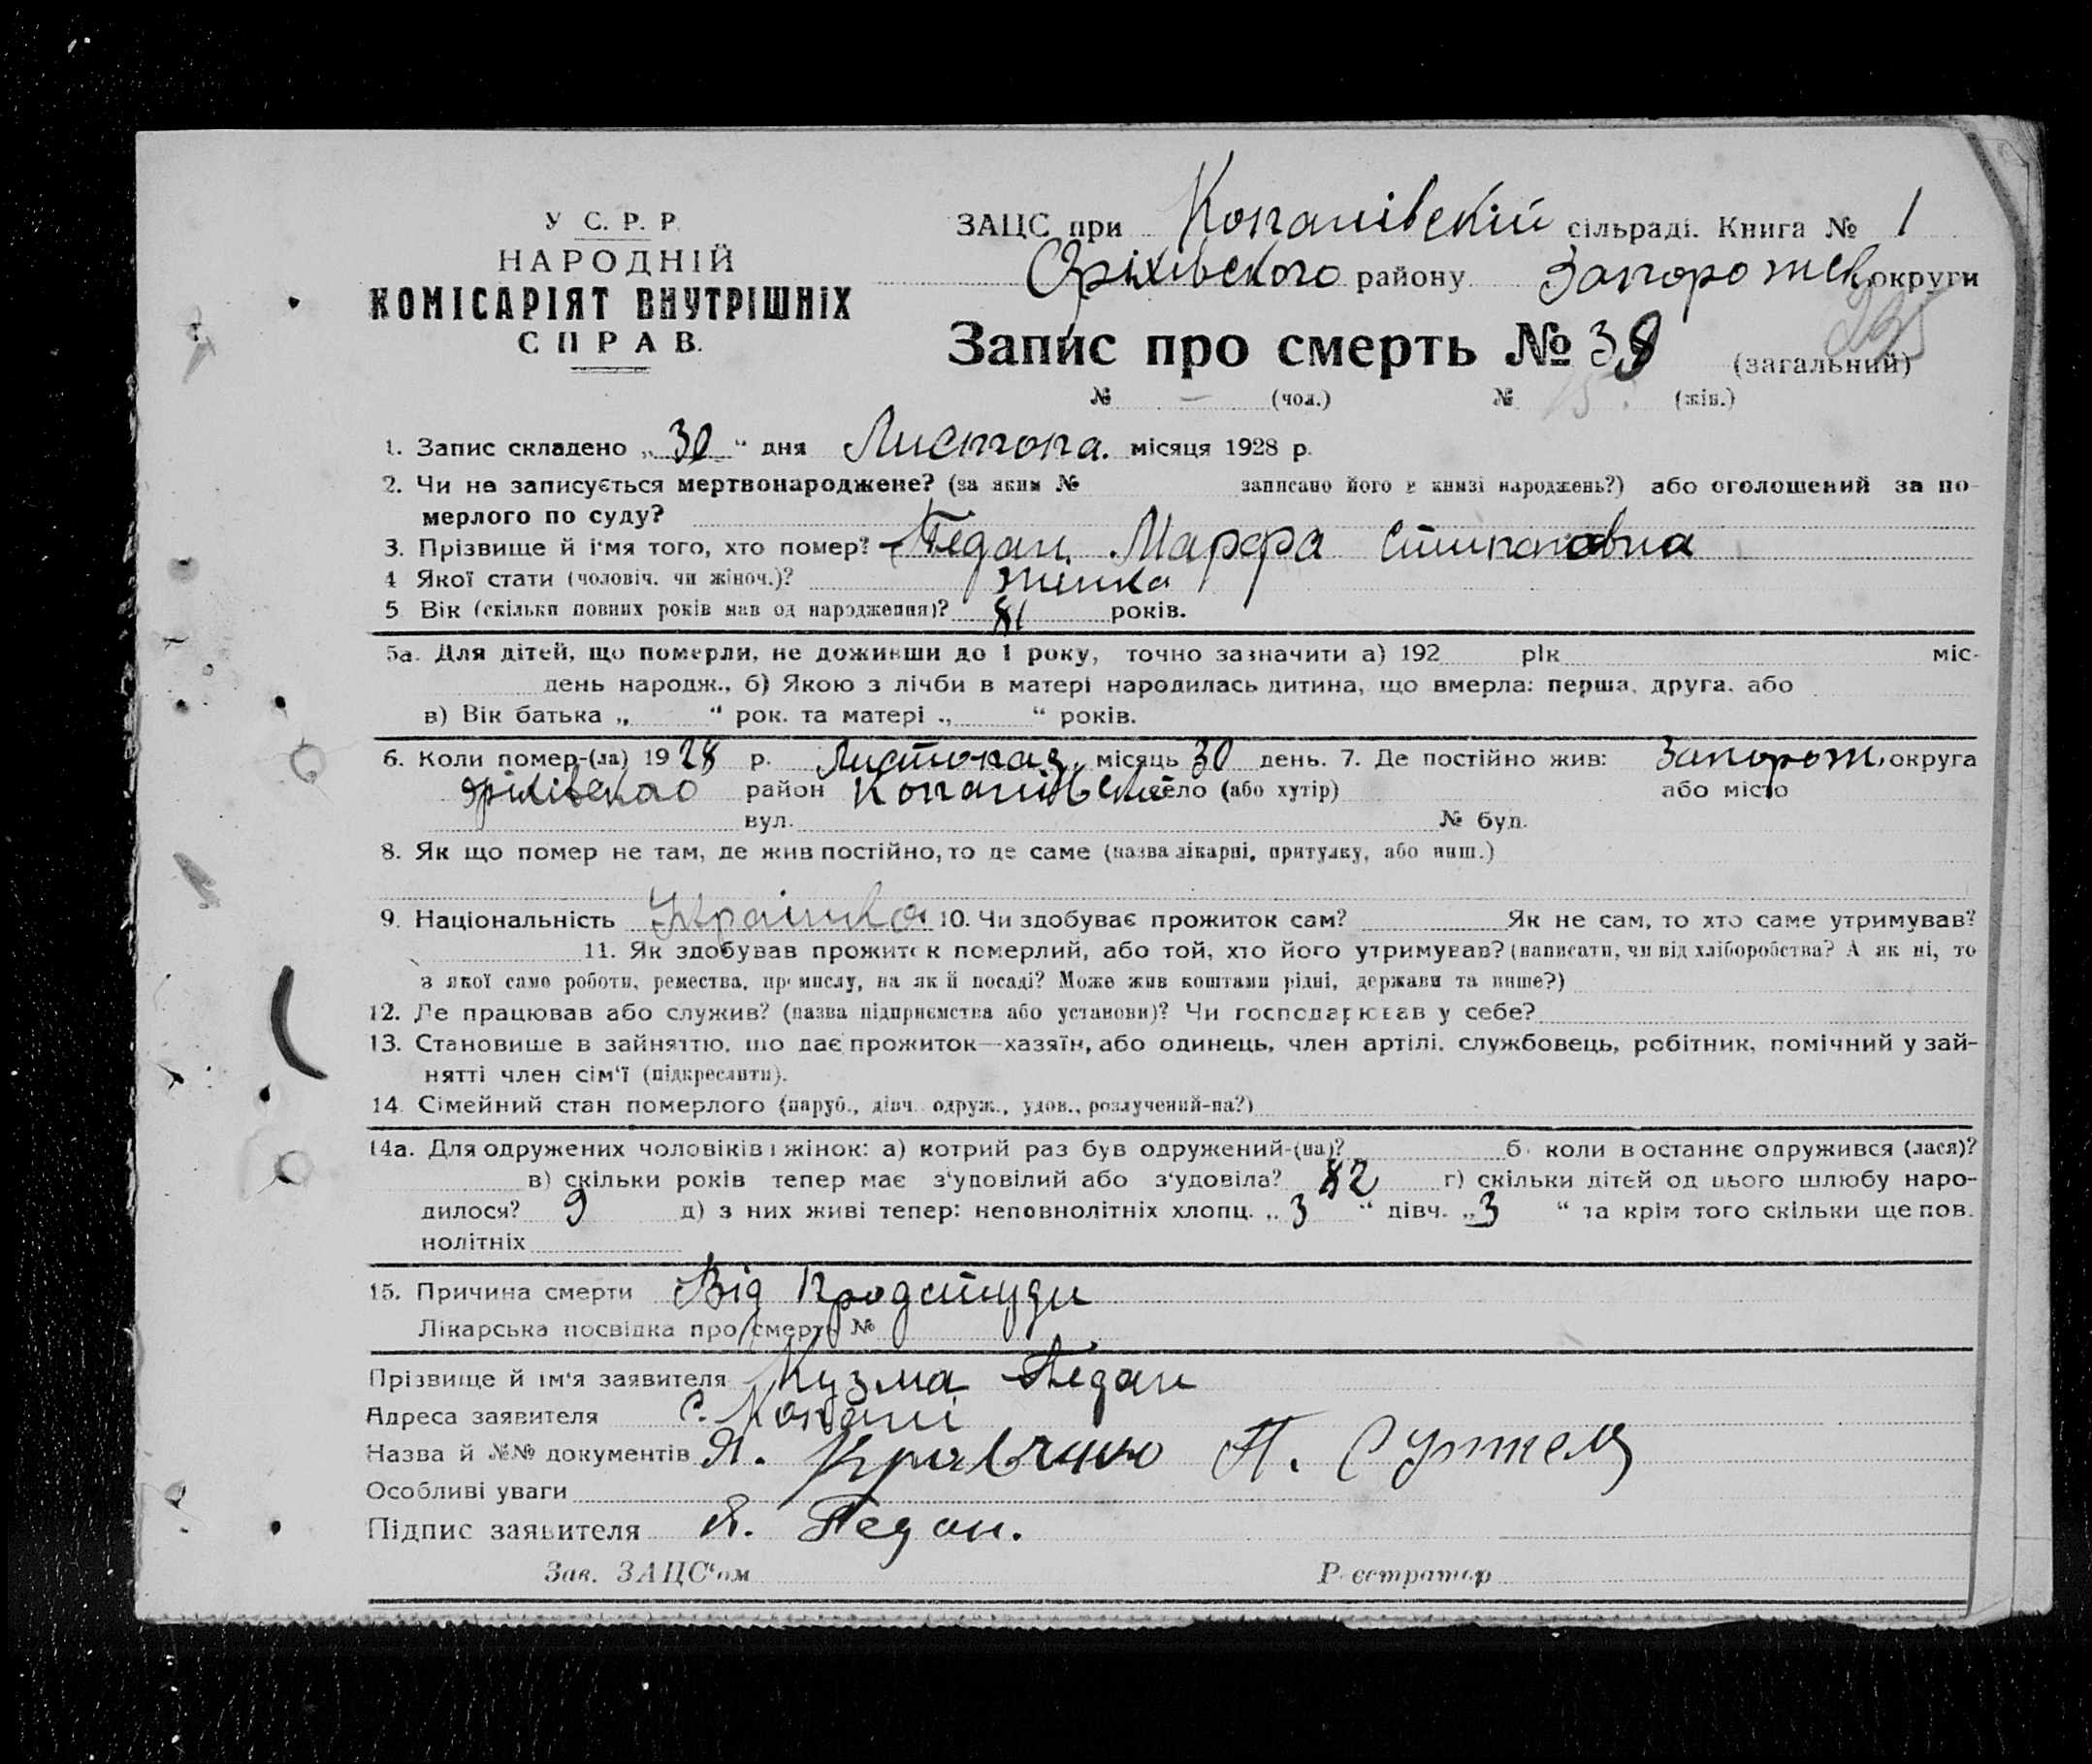 У С. Р. Р.
НАРОДНІЙ
КОМІСАРІЯТ ВНУТРІШНІХ
СПРАВ.
ЗАЦС при Копанівскій сільраді. Книга № 1
Оріхівского району Запорожск округи
Запис про смерть № 38 (загальний)
№ — (чол.) № 15 (жін.)
1. Запис складено „30“ дня Листопа. місяця 1928 р.
2. Чи не записується мертвонароджене? (за яким № записано його в книзі народжень?) або оголошений за по-
мерлого по суду?
3. Прізвище й і'мя того, хто помер? Педан Марфа Стипановна
4 Якої стати (чоловіч. чи жіноч.)? жинка
5 Вік (скільки повних років мав од народження)? 81 років.
5а. Для дітей, що померли, не доживши до 1 року, точно зазначити а) 192 рік міс-
день народж., б) Якою з лічби в матері народилась дитина, що вмерла: перша, друга, або
в) Вік батька „ “ рок. та матері „ “ років.
6. Коли помер-(ла) 1928 р. Листопад місяць 30 день. 7. Де постійно жив: Запорож. округа
Оріхівскаго район Копанівске село (або хутір) або місто
вул. № буд.
8. Як що помер не там, де жив постійно, то де саме (назва лікарні, притулку, або инш.)
9. Національність Украінка 10. Чи здобуває прожиток сам? Як не сам, то хто саме утримував?
11. Як здобував прожиток померлий, або той, хто його утримував? (написати, чи від хліборобства? А як ні, то
з якої само роботи, ремества, промислу, на якій посаді? Може жив коштами рідні, держави та инше?)
12. Де працював або служив? (назва підприємства або установи)? Чи господарював у себе?
13. Становище в зайняттю, що дає прожиток—хазяїн, або одинець, член артілі, службовець, робітник, помічний у зай-
нятті член сім'ї (підкреслити).
14. Сімейний стан померлого (паруб., дівч. одруж., удов., розлучений-на?)
14а. Для одружених чоловіків і жінок: а) котрий раз був одружений-(на)? б) коли востаннє одружився (лася)?
в) скільки років тепер має з'удовілий або з'удовіла? 82 г) скільки дітей од цього шлюбу наро-
дилося? 9 д) з них живі тепер: неповнолітніх хлопц. „3“ дівч. „3“ та крім того скільки ще пов.
нолітніх
15. Причина смерти Від продстуди
Лікарська посвідка про смерть №
Прізвище й ім'я заявителя Кузма Педан
Адреса заявителя С. Копані
Назва й №№ документів Я. Кравчино П.
Особливі уваги
Підпис заявителя Я. Педан.
Зав. ЗАЦС'ом Реєстратор